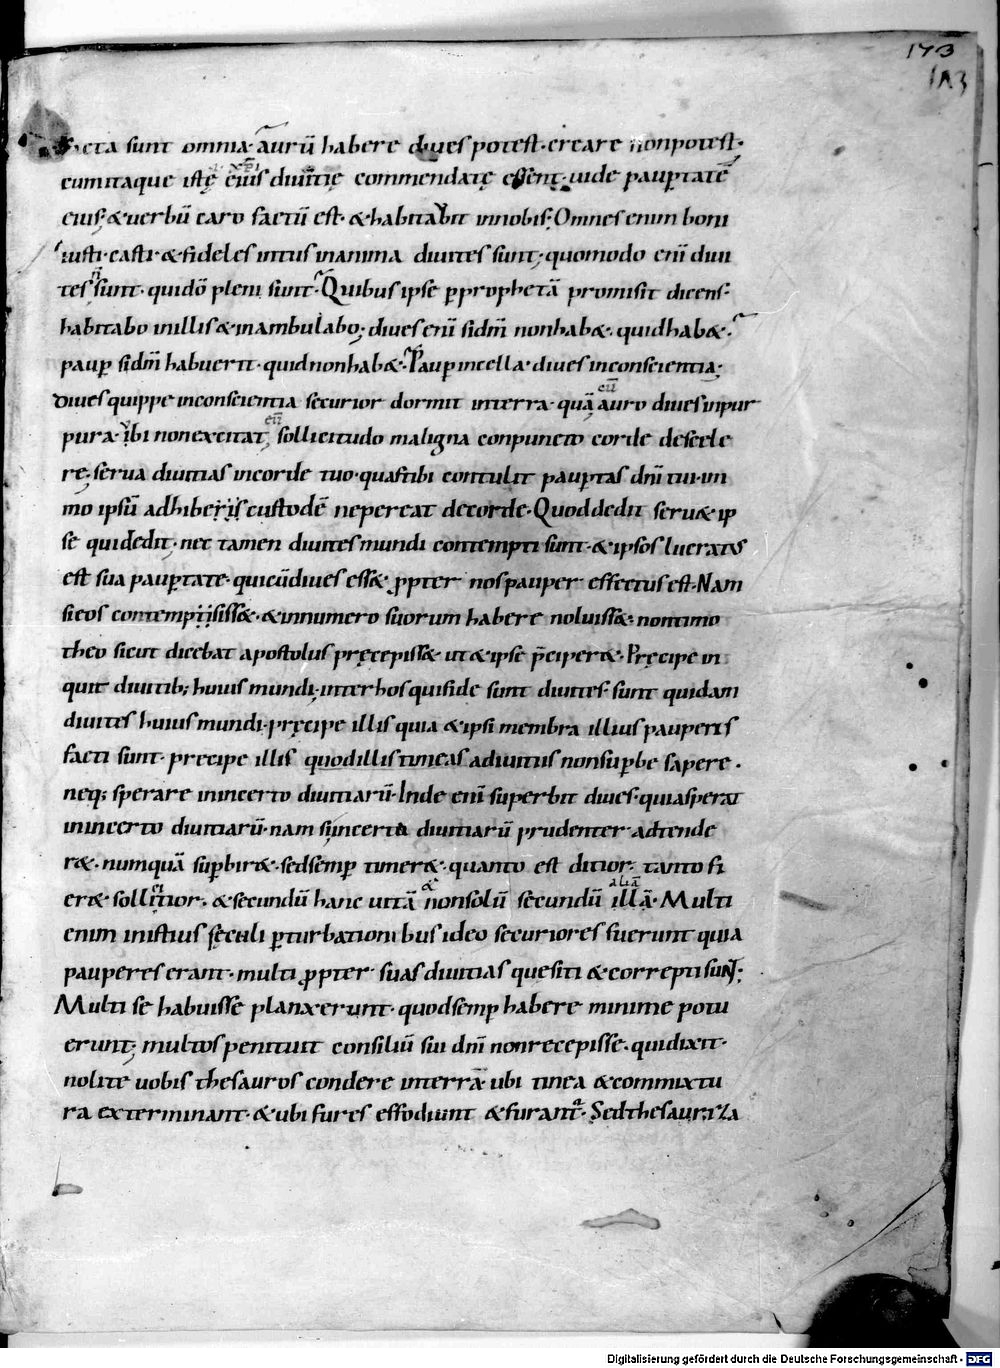 173
173
facta sunt omnia· aurū habere diues potest· creare non potest·
cum itaque istę eius diuitię commendatę essent· uide paup̱tatē
eius; & uerbū caro factū est· & habitabit innobis; Omnes enim boni
iusti· casti· & fideles intus inanima diuites sunt; quomodo enī diui
tes ñ sunt· qui dō pleni sunt· Quibus ipse p̱ prophetā promisit dicens·
habitabo inillis & inambulabo; diues enī sidm̄ nonhab&· quid hab&·
paup̱ sidm̄ habuerit· quid nonhab&· Paup̱ incella· diues inconscientia;
diues quippe inconscientia securior dormit interra· quā cū auro diues inpur
pura· ibi non excitat eū sollicitudo maligna conpuncto corde de scele
re; serua diuitias incorde tuo· quastibi contulit paup̱tas dn̄i tui· im
mo ipsū adhiberis custodē nepereat decorde· Quod dedit seru& ip
se qui dedit; nec tamen diuites mundi contempti sunt· & ipsos lucratus
est sua paup̱tate· qui cū diues ess& p̱pter nos pauper effectus est· Nam
si eos contempsiss&· & innumero suorum habere noluiss&; non timo
theo sicut dicebat apostolus pręcepiss& ut & ipse p̄ciper&· Pręcipe in
quit diuitib; huius mundi; inter hos qui fide sunt diuites· sunt quidam
diuites huius mundi· pręcipe illis quia & ipsi membra illius pauperis
facti sunt· precipe illis quod illis timeas adiuitiis non sup̱be sapere·
neq; sperare inincerto diuitiarū· Inde enī superbit diues· quia sperat
inincerto diuitiarū· nam si incerta diuitiarū prudenter adtende
r&· numquā sup̱bir&· sed semp̱ timer&· quanto est ditior· tanto fi
er& sollicitior· & secundū hanc uitā & nonsolū secundū illā aliā· Multi
enim inistius sęculi p̱turbationibus ideo securiores fuerunt quia
pauperes erant· multi p̱pter suas diuitias quesiti & correpti sunt;
Multi se habuisse planxerunt· quod semp̱ habere minime potu
erunt; multos penituit consiliū sui dn̄i non recepisse· qui dixit·
nolite uobis thesauros condere interra· ubi tinea & commixtu
ra exterminant· & ubi fures effodiunt & furant᷑· Sed thesauriza
Digitalisierung gefördert durch die Deutsche Forschungsgemeinschaft - DFG